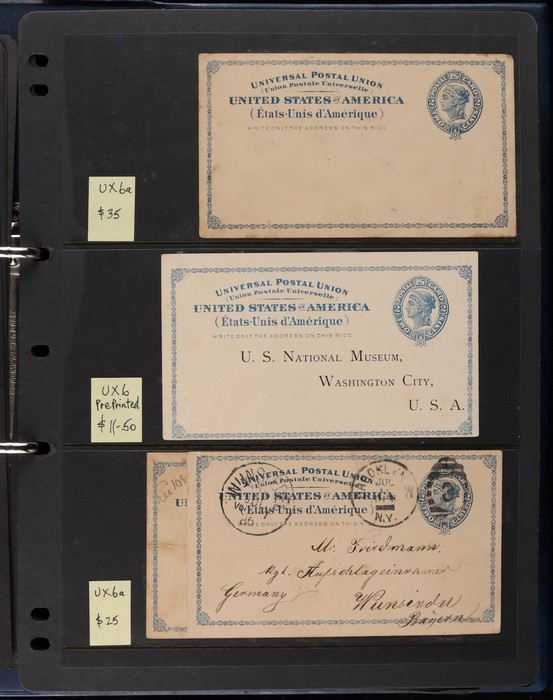 UX6a
$35
UNIVERSAL POSTAL UNION
(Union Postale Universelle)
UNITED STATES OF AMERICA
(États-Unis d'Amérique)
WRITE ONLY THE ADDRESS ON THIS SIDE
POSTAL CARD
TWO CENTS
UX6
PrePrinted
$11-50
UNIVERSAL POSTAL UNION
(Union Postale Universelle)
UNITED STATES OF AMERICA
(États-Unis d'Amérique)
WRITE ONLY THE ADDRESS ON THIS SIDE
POSTAL CARD
TWO CENTS
U. S. NATIONAL MUSEUM,
WASHINGTON CITY,
U. S. A.
UX6a
$25
UNIVERSAL POSTAL UNION
(Union Postale Universelle)
UNITED STATES OF AMERICA
(États-Unis d'Amérique)
WRITE ONLY THE ADDRESS ON THIS SIDE
JUL
N.Y.
Mr. Friedmann.
Kgl. Aufschlageinnehmer
Germany
Bayern